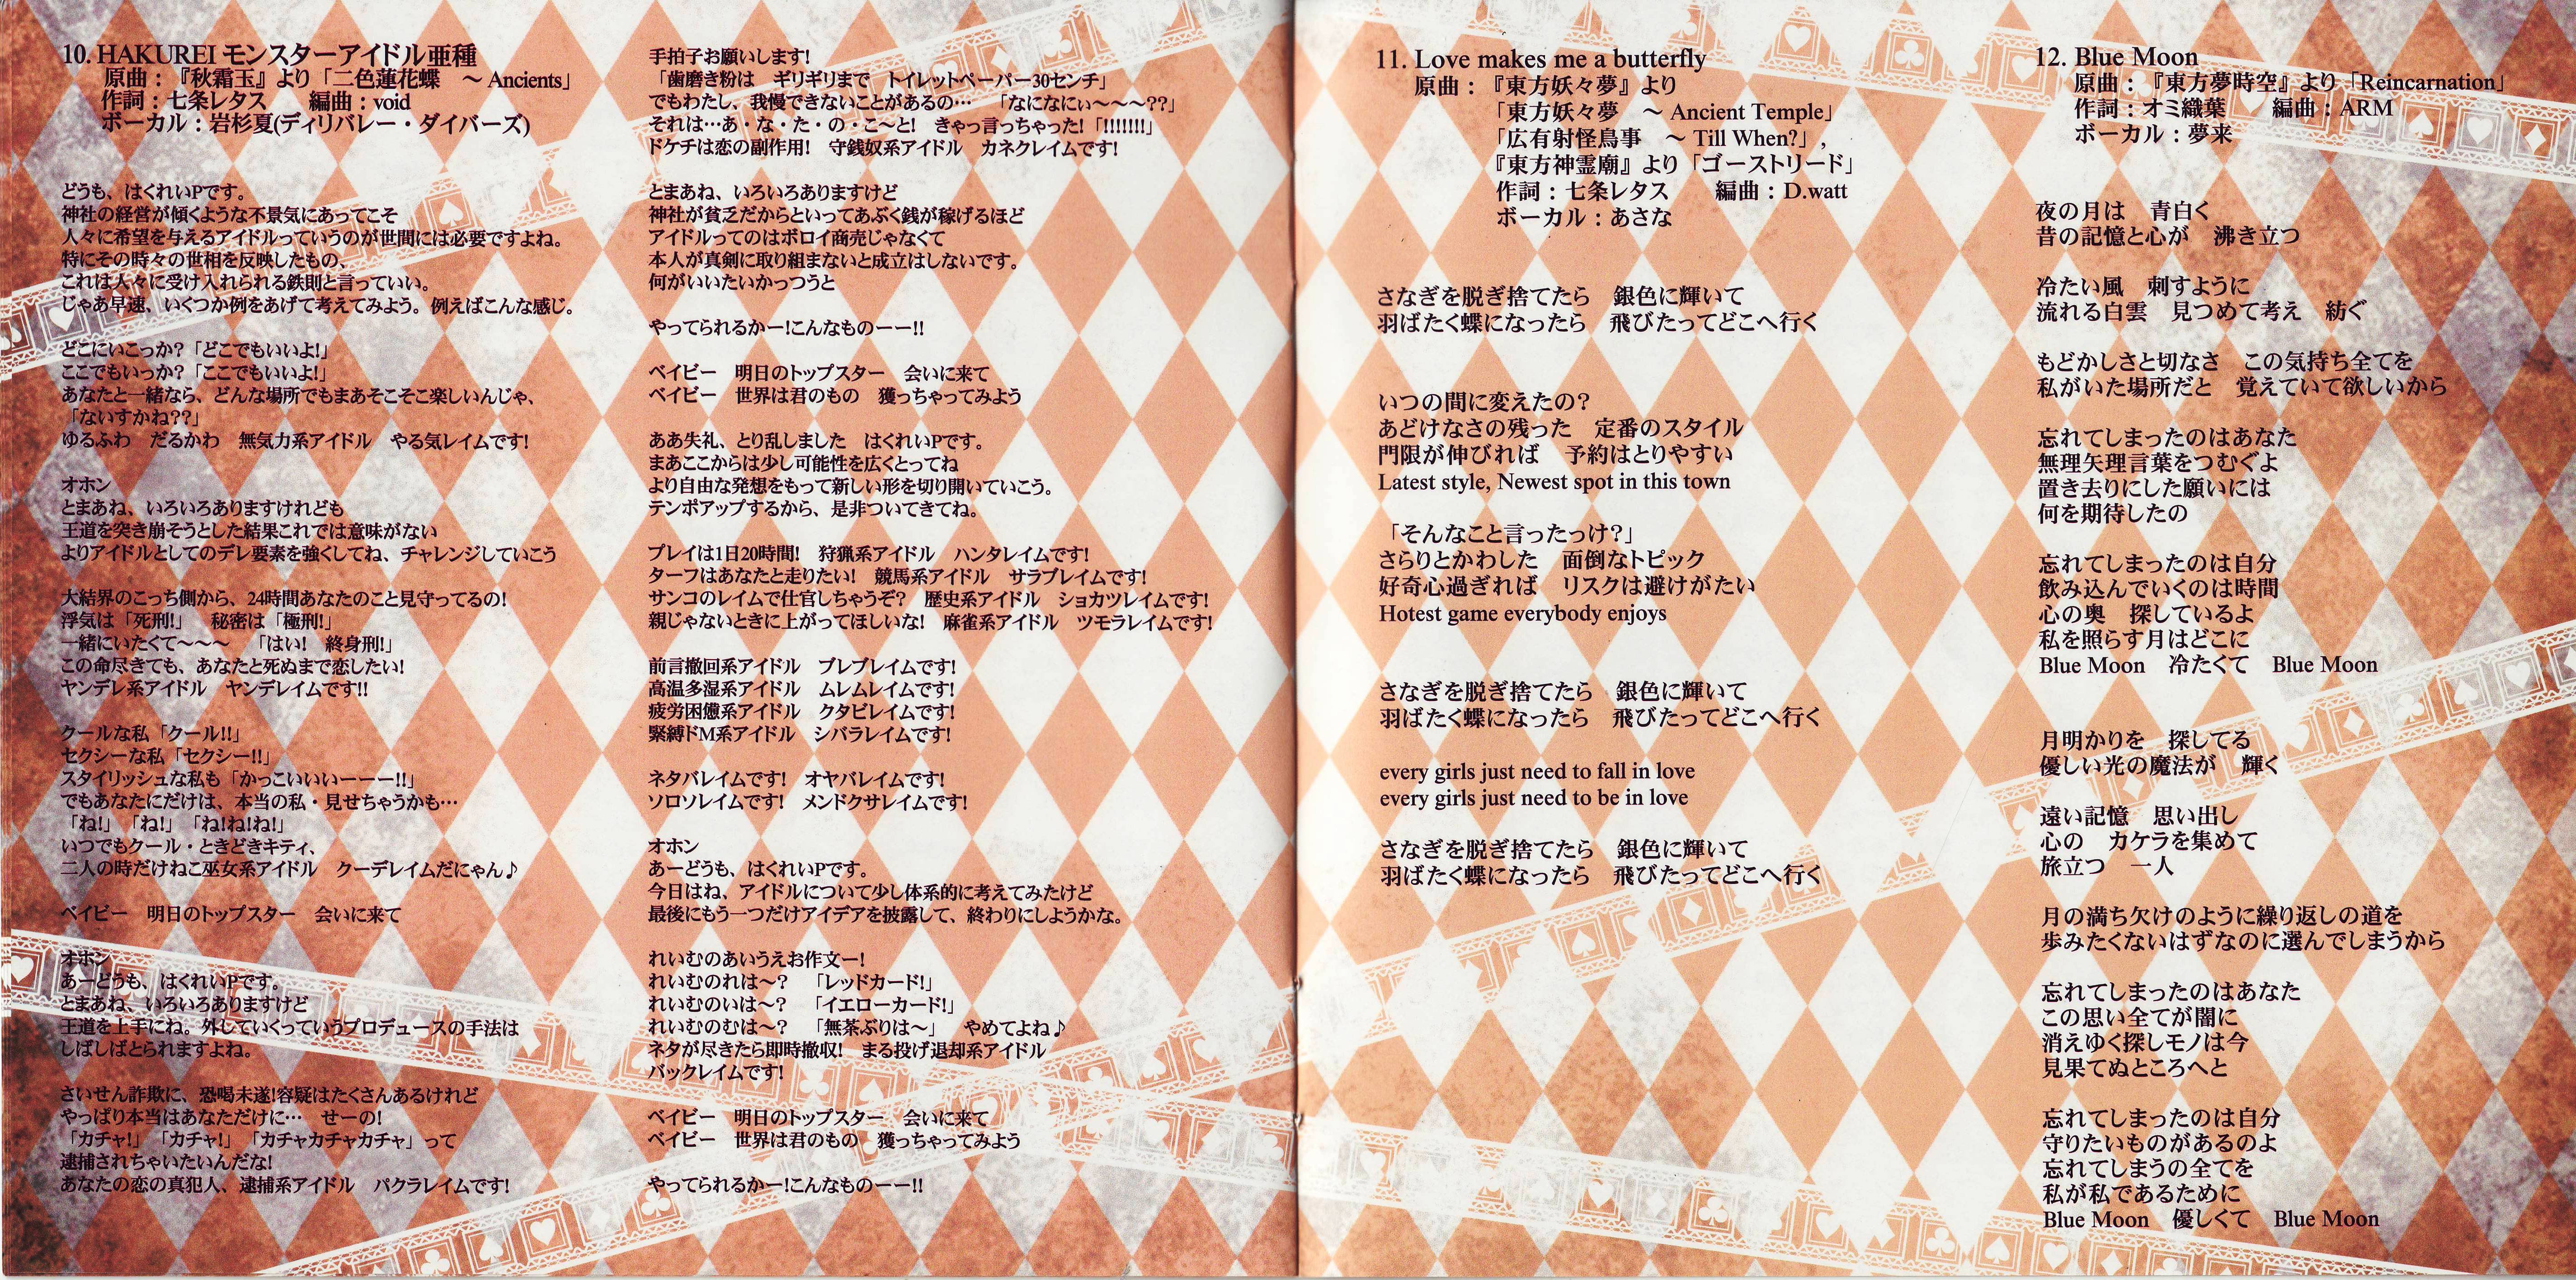 10. HAKUREIモンスターアイドル亜種
原曲：『秋霜玉』より「二色蓮花蝶　～ Ancients」
作詞：七条レタス　　編曲：void
ボーカル：岩杉夏(ディリバレー・ダイバーズ)
どうも、はくれいPです。
神社の経営が傾くような不景気にあってこそ
人々に希望を与えるアイドルっていうのが世間には必要ですよね。
特にその時々の世相を反映したもの、
これは人々に受け入れられる鉄則と言っていい。
じゃあ早速、いくつか例をあげて考えてみよう。例えばこんな感じ。
どこにいこっか?「どこでもいいよ!」
ここでもいっか?「ここでもいいよ!」
あなたと一緒なら、どんな場所でもまあそこそこ楽しいんじゃ、
「ないすかね??」
ゆるふわ　だるかわ　無気力系アイドル　やる気レイムです!
オホン
とまあね、いろいろありますけれども
王道を突き崩そうとした結果これでは意味がない
よりアイドルとしてのデレ要素を強くしてね、チャレンジしていこう
大結界のこっち側から、24時間あなたのこと見守ってるの!
浮気は「死刑!」　秘密は「極刑!」
一緒にいたくて～～～　「はい!　終身刑!」
この命尽きても、あなたと死ぬまで恋したい!
ヤンデレ系アイドル　ヤンデレイムです!!
クールな私「クール!!」
セクシーな私「セクシー!!」
スタイリッシュな私も「かっこいいいーーー!!」
でもあなたにだけは、本当の私・見せちゃうかも…
「ね!」「ね!」「ね!ね!ね!」
いつでもクール・ときどきキティ、
二人の時だけねこ巫女系アイドル　クーデレイムだにゃん♪
ベイビー　明日のトップスター　会いに来て
オホン
あーどうも、はくれいPです。
とまあね、いろいろありますけど
王道を上手にね。外していくっていうプロデュースの手法は
しばしばとられますよね。
さいせん詐欺に、恐喝未遂!容疑はたくさんあるけれど
やっぱり本当はあなただけに…　せーの!
「カチャ!」「カチャ!」「カチャカチャカチャ」って
逮捕されちゃいたいんだな!
あなたの恋の真犯人、逮捕系アイドル　パクラレイムです!
手拍子お願いします!
「歯磨き粉は　ギリギリまで　トイレットペーパー30センチ」
でもわたし、我慢できないことがあるの…　「なになにぃ～～～??」
それは…あ・な・た・の・こ～と!　きゃっ言っちゃった!「!!!!!!!」
ドケチは恋の副作用!　守銭奴系アイドル　カネクレイムです!
とまあね、いろいろありますけど
神社が貧乏だからといってあぶく銭が稼げるほど
アイドルってのはボロイ商売じゃなくて
本人が真剣に取り組まないと成立はしないです。
何がいいたいかっつうと
やってられるかー!こんなものーー!!
ベイビー　明日のトップスター　会いに来て
ベイビー　世界は君のもの　獲っちゃってみよう
ああ失礼、とり乱しました　はくれいPです。
まあここからは少し可能性を広くとってね
より自由な発想をもって新しい形を切り開いていこう。
テンポアップするから、是非ついてきてね。
プレイは1日20時間!　狩猟系アイドル　ハンタレイムです!
ターフはあなたと走りたい!　競馬系アイドル　サラブレイムです!
サンコのレイムで仕官しちゃうぞ?　歴史系アイドル　ショカツレイムです!
親じゃないときに上がってほしいな!　麻雀系アイドル　ツモラレイムです!
前言撤回系アイドル　ブレブレイムです!
高温多湿系アイドル　ムレムレイムです!
疲労困憊系アイドル　クタビレイムです!
緊縛ドM系アイドル　シバラレイムです!
ネタバレイムです!　オヤバレイムです!
ソロソレイムです!　メンドクサレイムです!
オホン
あーどうも、はくれいPです。
今日はね、アイドルについて少し体系的に考えてみたけど
最後にもう一つだけアイデアを披露して、終わりにしようかな。
れいむのあいうえお作文ー!
れいむのれは～?　「レッドカード!」
れいむのいは～?　「イエローカード!」
れいむのむは～?　「無茶ぶりは～」　やめてよね♪
ネタが尽きたら即時撤収!　まる投げ退却系アイドル
バックレイムです!
ベイビー　明日のトップスター　会いに来て
ベイビー　世界は君のもの　獲っちゃってみよう
やってられるかー!こんなものーー!!
11. Love makes me a butterfly
原曲：『東方妖々夢』より
「東方妖々夢　～ Ancient Temple」
「広有射怪鳥事　～ Till When?」,
『東方神霊廟』より「ゴーストリード」
作詞：七条レタス　　編曲：D.watt
ボーカル：あさな
さなぎを脱ぎ捨てたら　銀色に輝いて
羽ばたく蝶になったら　飛びたってどこへ行く
いつの間に変えたの？
あどけなさの残った　定番のスタイル
門限が伸びれば　予約はとりやすい
Latest style, Newest spot in this town
「そんなこと言ったっけ？」
さらりとかわした　面倒なトピック
好奇心過ぎれば　リスクは避けがたい
Hotest game everybody enjoys
さなぎを脱ぎ捨てたら　銀色に輝いて
羽ばたく蝶になったら　飛びたってどこへ行く
every girls just need to fall in love
every girls just need to be in love
さなぎを脱ぎ捨てたら　銀色に輝いて
羽ばたく蝶になったら　飛びたってどこへ行く
12. Blue Moon
原曲：『東方夢時空』より「Reincarnation」
作詞：オミ織葉　　編曲：ARM
ボーカル：夢来
夜の月は　青白く
昔の記憶と心が　沸き立つ
冷たい風　刺すように
流れる白雲　見つめて考え　紡ぐ
もどかしさと切なさ　この気持ち全てを
私がいた場所だと　覚えていて欲しいから
忘れてしまったのはあなた
無理矢理言葉をつむぐよ
置き去りにした願いには
何を期待したの
忘れてしまったのは自分
飲み込んでいくのは時間
心の奥　探しているよ
私を照らす月はどこに
Blue Moon　冷たくて　Blue Moon
月明かりを　探してる
優しい光の魔法が　輝く
遠い記憶　思い出し
心の　カケラを集めて
旅立つ　一人
月の満ち欠けのように繰り返しの道を
歩みたくないはずなのに選んでしまうから
忘れてしまったのはあなた
この思い全てが闇に
消えゆく探しモノは今
見果てぬところへと
忘れてしまったのは自分
守りたいものがあるのよ
忘れてしまうの全てを
私が私であるために
Blue Moon　優しくて　Blue Moon